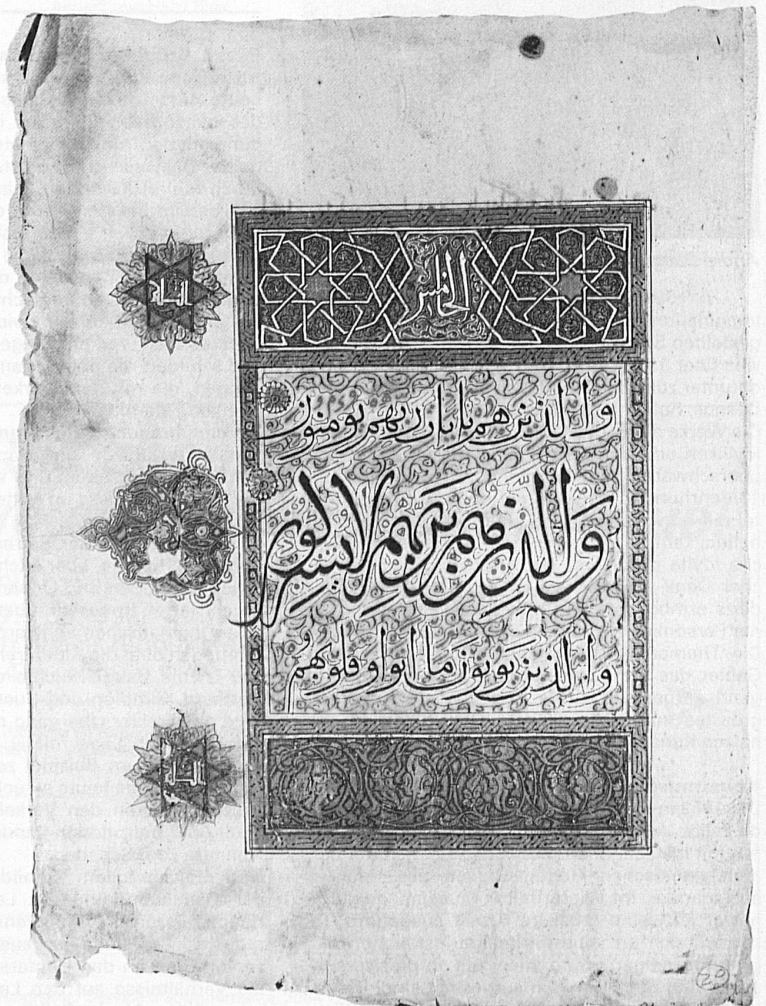 الخامس
والذين هم بايات ربهم يومنون
والذين هم بربهم لا يشركون
والذين يوتون ما اتوا وقلوبهم